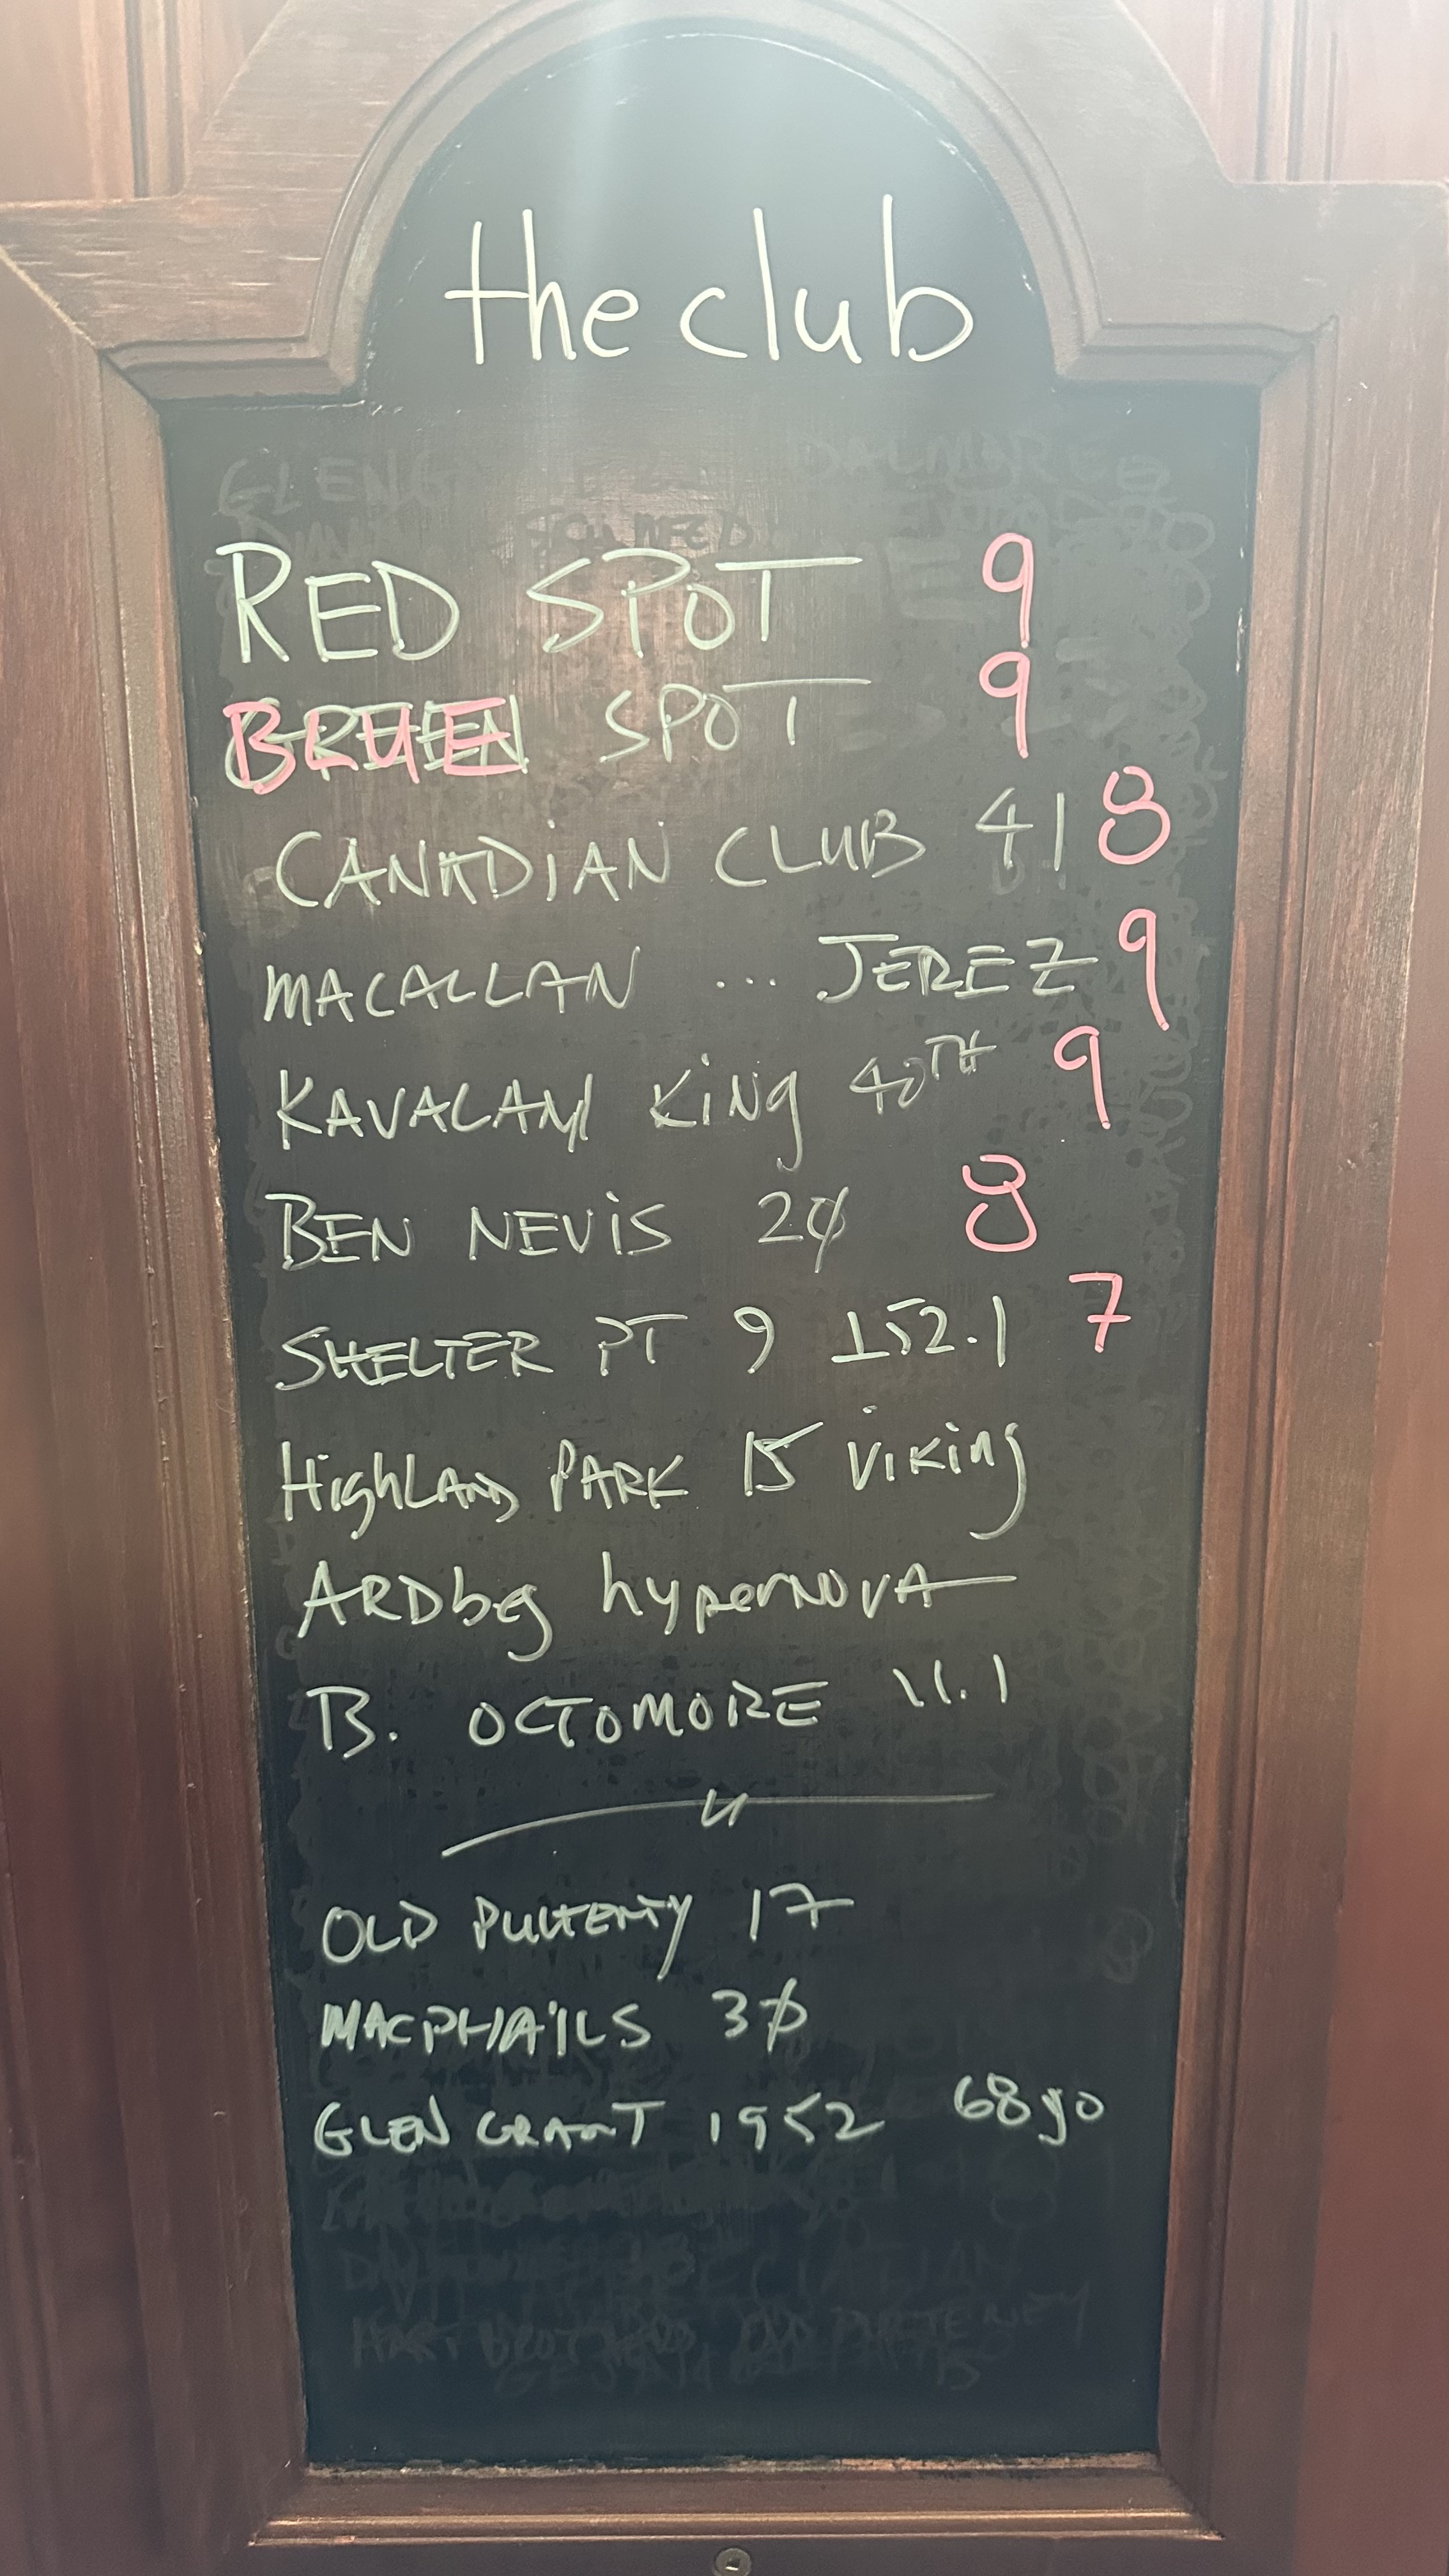 the club
RED SPOT 9
BLUE SPOT 9
CANADIAN CLUB 41 8
MACALLAN ... JEREZ 9
KAVALAN KING 40TH 9
BEN NEVIS 20 8
SHELTER PT 9 152.1 7
HIGHLAND PARK 15 VIKING
ARDbeg hyperNOVA
B. OCTOMORE 11.1
OLD PULTENEY 17
MACPHAILS 30
GLEN GRANT 1952 68yo